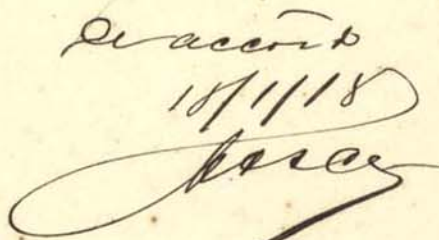 De accord
18/1/18